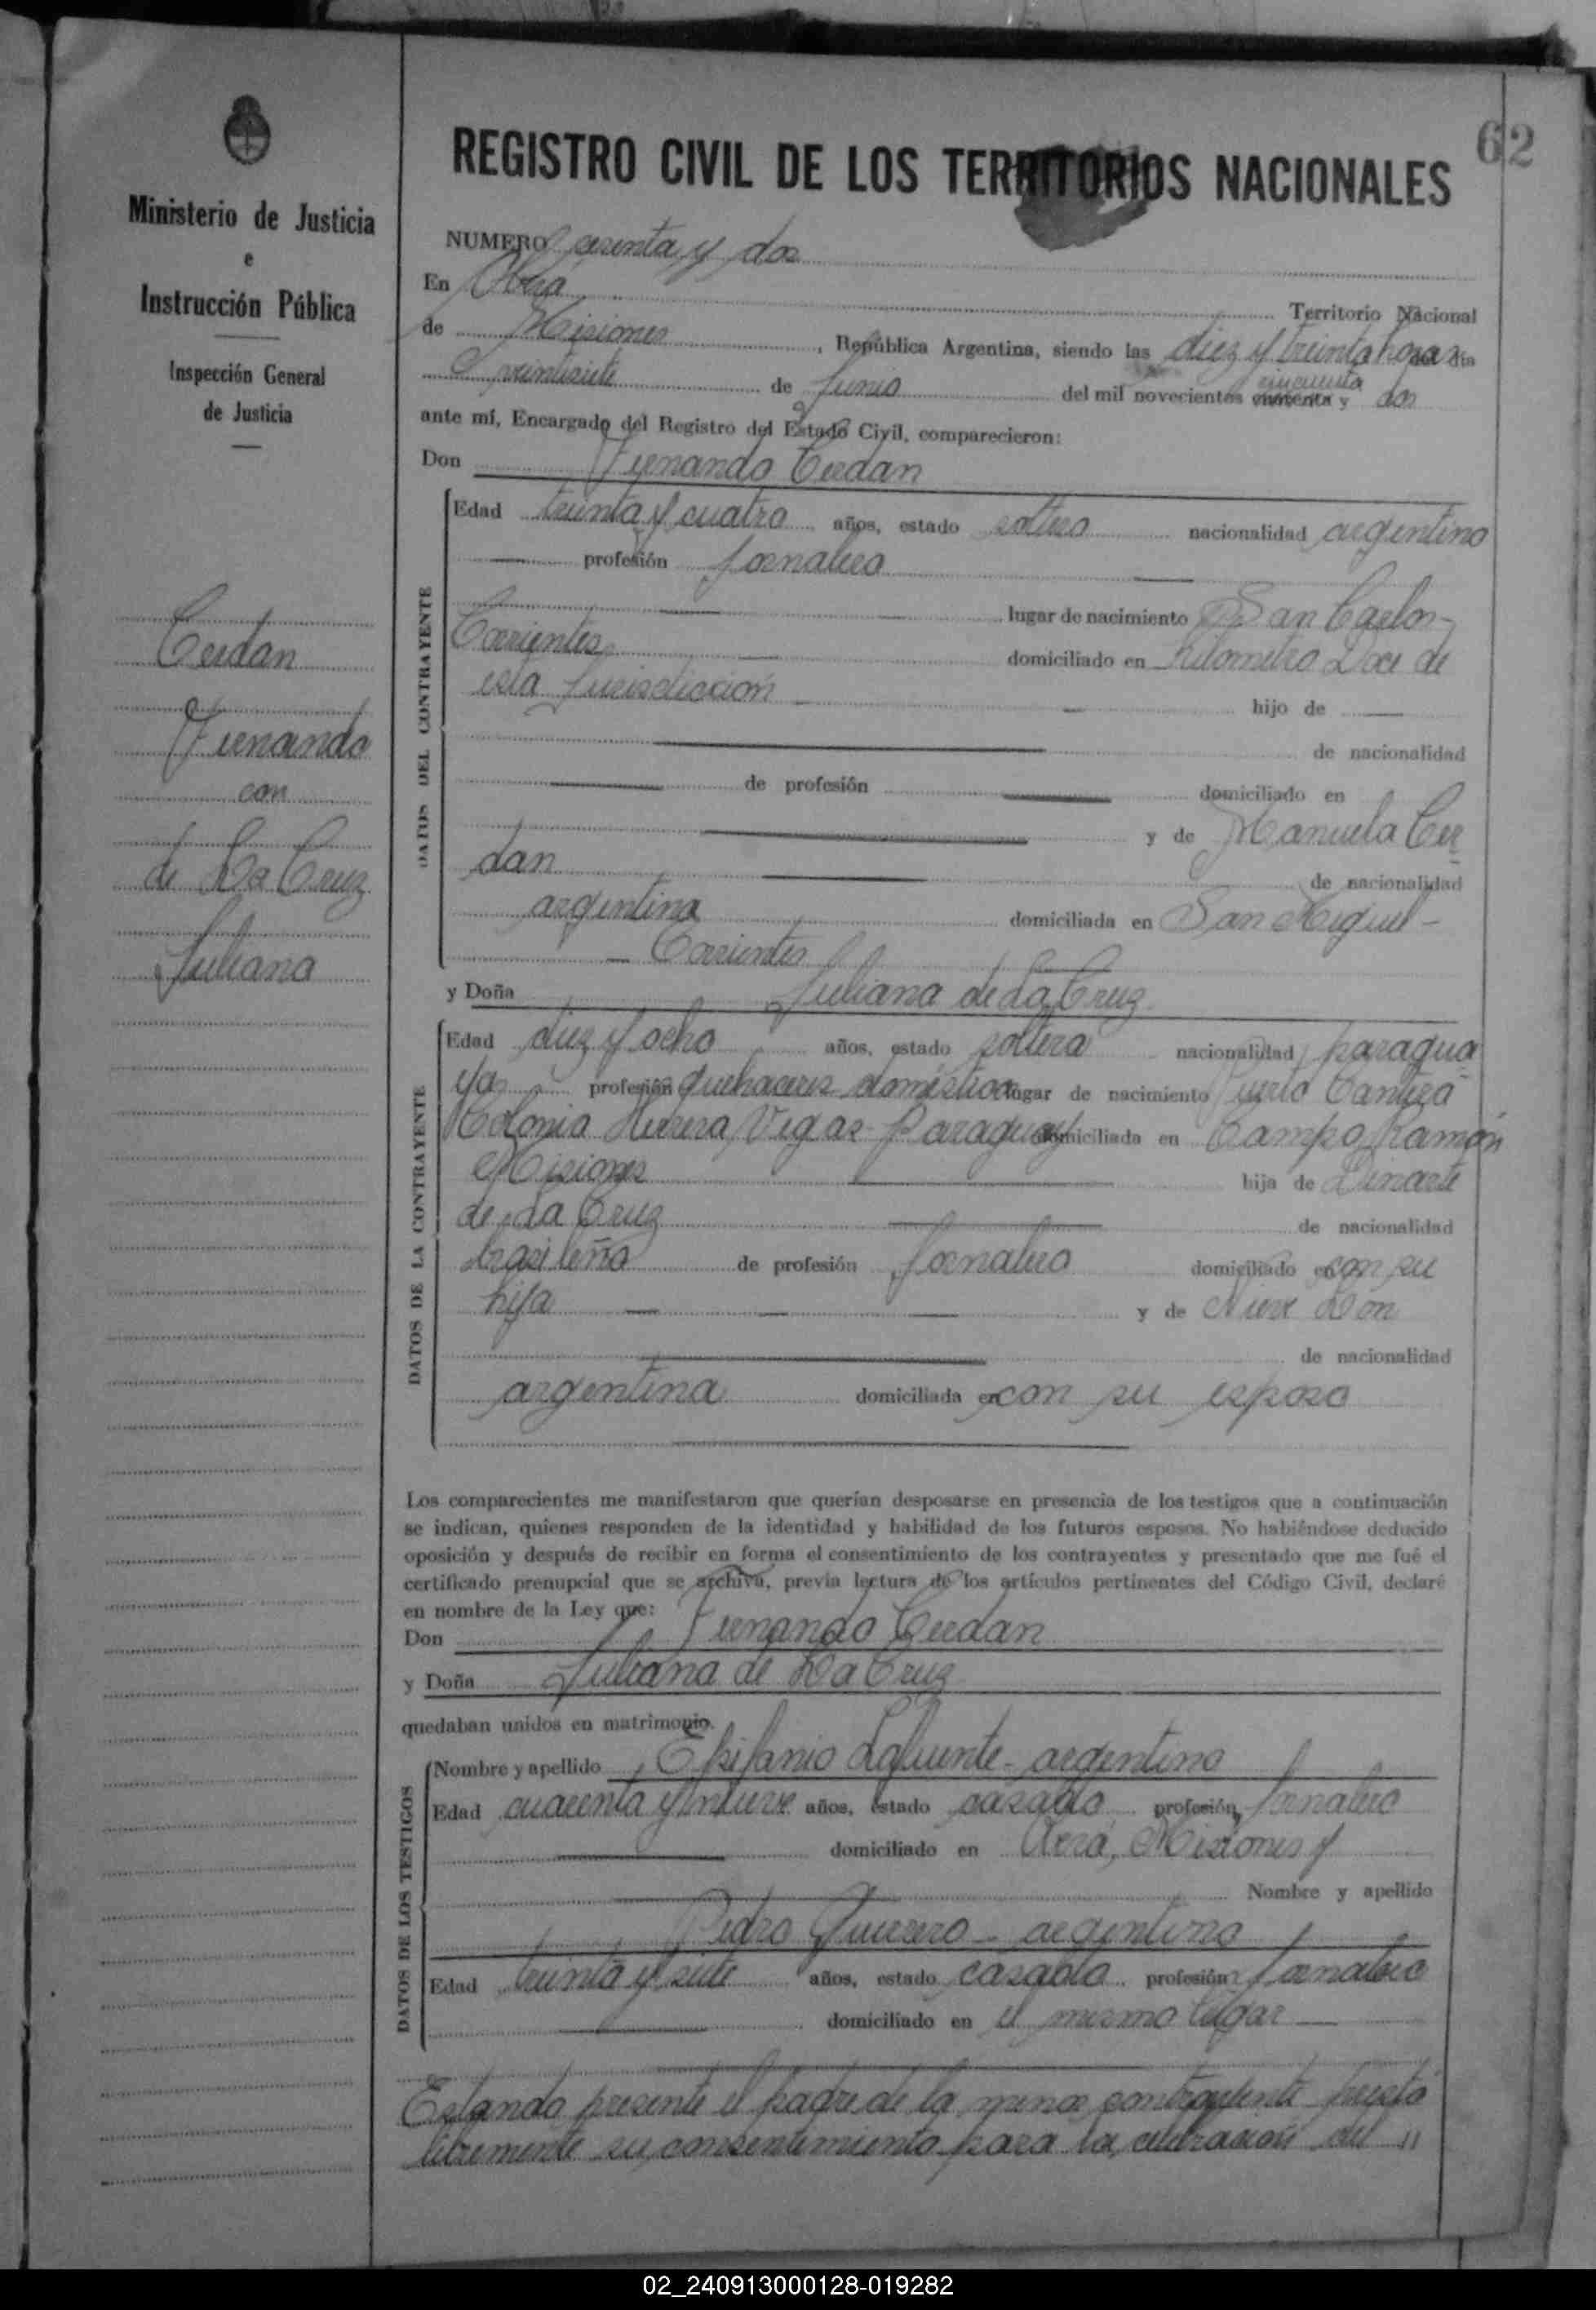 62
Ministerio de Justicia
e
Instrucción Pública
Inspección General
de Justicia
Cerdan
Fernando
con
de La Cruz
Juliana
REGISTRO CIVIL DE LOS TERRITORIOS NACIONALES
NUMERO sesenta y dos
En Oberá Territorio Nacional
de Misiones, República Argentina, siendo las diez y treinta horas del día
veintisiete de Junio del mil novecientos cincuenta y dos
ante mí, Encargado del Registro del Estado Civil, comparecieron:
Don Fernando Cerdan
DATOS DEL CONTRAYENTE
Edad treinta y cuatro años, estado soltero nacionalidad argentino
profesión Jornalero
lugar de nacimiento San Carlos-
Corrientes domiciliado en kilometro Doce de
esta Jurisdicción hijo de
de nacionalidad
de profesión domiciliado en
y de Manuela Cer
dan de nacionalidad
argentina domiciliada en San Miguel-
Corrientes
y Doña Juliana de La Cruz
DATOS DE LA CONTRAYENTE
Edad diez y ocho años, estado soltera nacionalidad paragua
ya profesión quehaceres domésticos lugar de nacimiento Puerto Cantera
Colonia Herrera Vegas-Paraguay domiciliada en Campo Ramón
Misiones hija de Dinarte
de La Cruz de nacionalidad
brasileño de profesión Jornalero domiciliado en con su
hija y de Nieve Don
de nacionalidad
argentina domiciliada en con su esposo
Los comparecientes me manifestaron que querían desposarse en presencia de los testigos que a continuación
se indican, quienes responden de la identidad y habilidad de los futuros esposos. No habiéndose deducido
oposición y después de recibir en forma el consentimiento de los contrayentes y presentado que me fué el
certificado prenupcial que se archiva, previa lectura de los artículos pertinentes del Código Civil, declaré
en nombre de la Ley que:
Don Fernando Cerdan
y Doña Juliana de La Cruz
quedaban unidos en matrimonio.
DATOS DE LOS TESTIGOS
Nombre y apellido Epifanio Lafuente-argentino
Edad cuarenta y nueve años, estado casado profesión Jornalero
domiciliado en Oberá, Misiones y
Nombre y apellido
Pedro Guerrero-argentino
Edad treinta y siete años, estado casado profesión Jornalero
domiciliado en el mismo lugar
Estando presente el padre de la menor contrayente prestó
libremente su consentimiento para la celebración del "
02_240913000128-019282